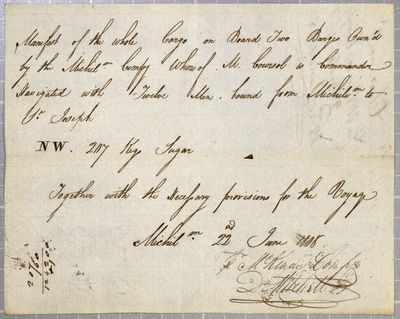 Manifest of the whole Cargo on Board Two Barge Own'd
by the Michilm Compy Whereof M. Coursol is Commander
Navigated with Twelve Men. bound from Michilm to
St. Joseph
NW. 247 Kegs Sugar
Together with the Necessary provisions for the Voyage
Michilm 22nd June 1808